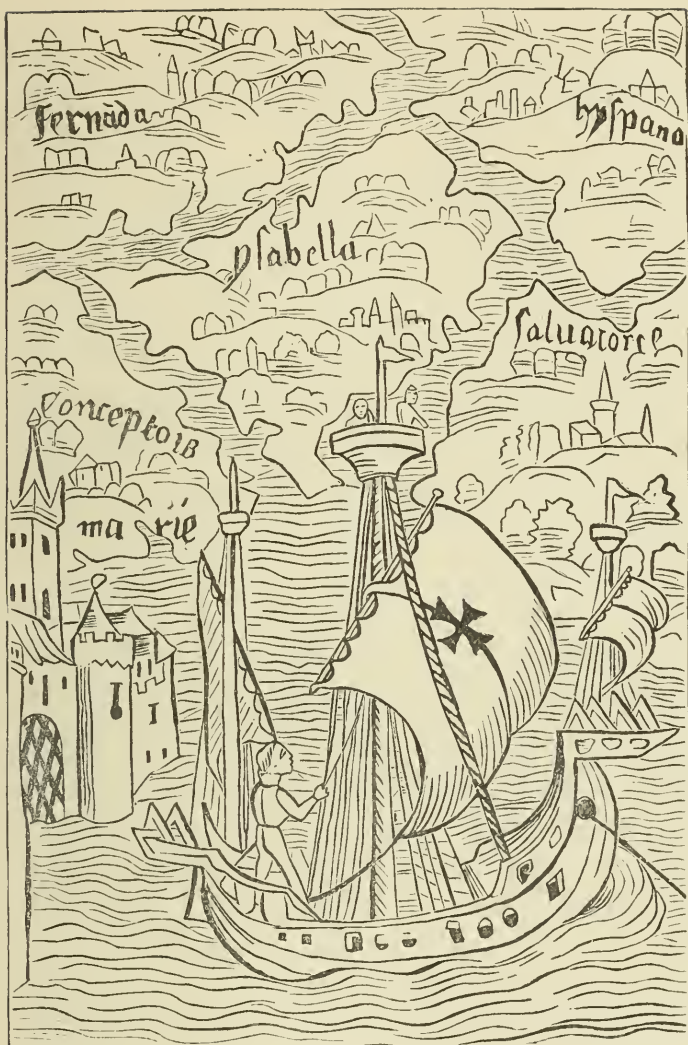 fernãda
hyſpana
yſabella
ſaluatorie
Conceptoiz
ma rie